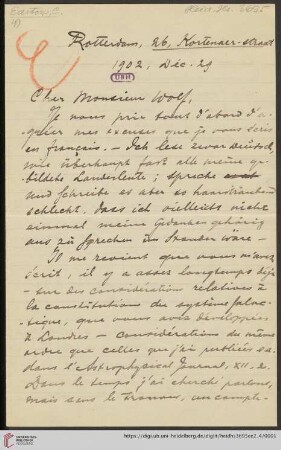 Easton, C.
1)
Rotterdam, 26, Kortenaer-straat
1902, Déc. 29
UBH
Cher Monsieur Wolf,
Je vous prie tout d'abord d'a-
gréer mes excuses que je vous écris
en français. — Ich lese zwar Deutsch,
wie überhaupt fast alle meine ge-
bildete Landesleute; spreche
und schreibe es aber so haarsträubend
schlecht, dass ich vielleicht nicht
einmal meine Gedanken gehörig
aus zu sprechen im Stande wäre —
Il me revient que vous m'avez
écrit, il y a assez longtemps déjà
— sur des considérations relatives à
la constitution du système galac-
tique, que vous avez développées
à Londres — considérations du même
ordre que celles que j'ai publiées
dans l'Astrophysical Journal, XII, 2.
Dans le temps, j'ai cherché partout,
mais sans le trouver, un compte-
https://digi.ub.uni-heidelberg.de/diglit/heidhs3695ee2_A/0003
UNIVERSITÄTS-
BIBLIOTHEK
HEIDELBERG